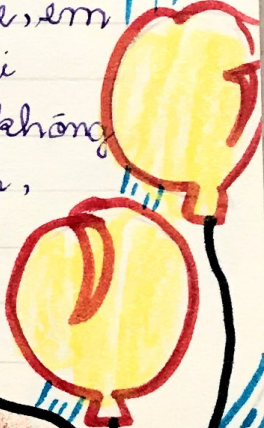 , em
i
không
,